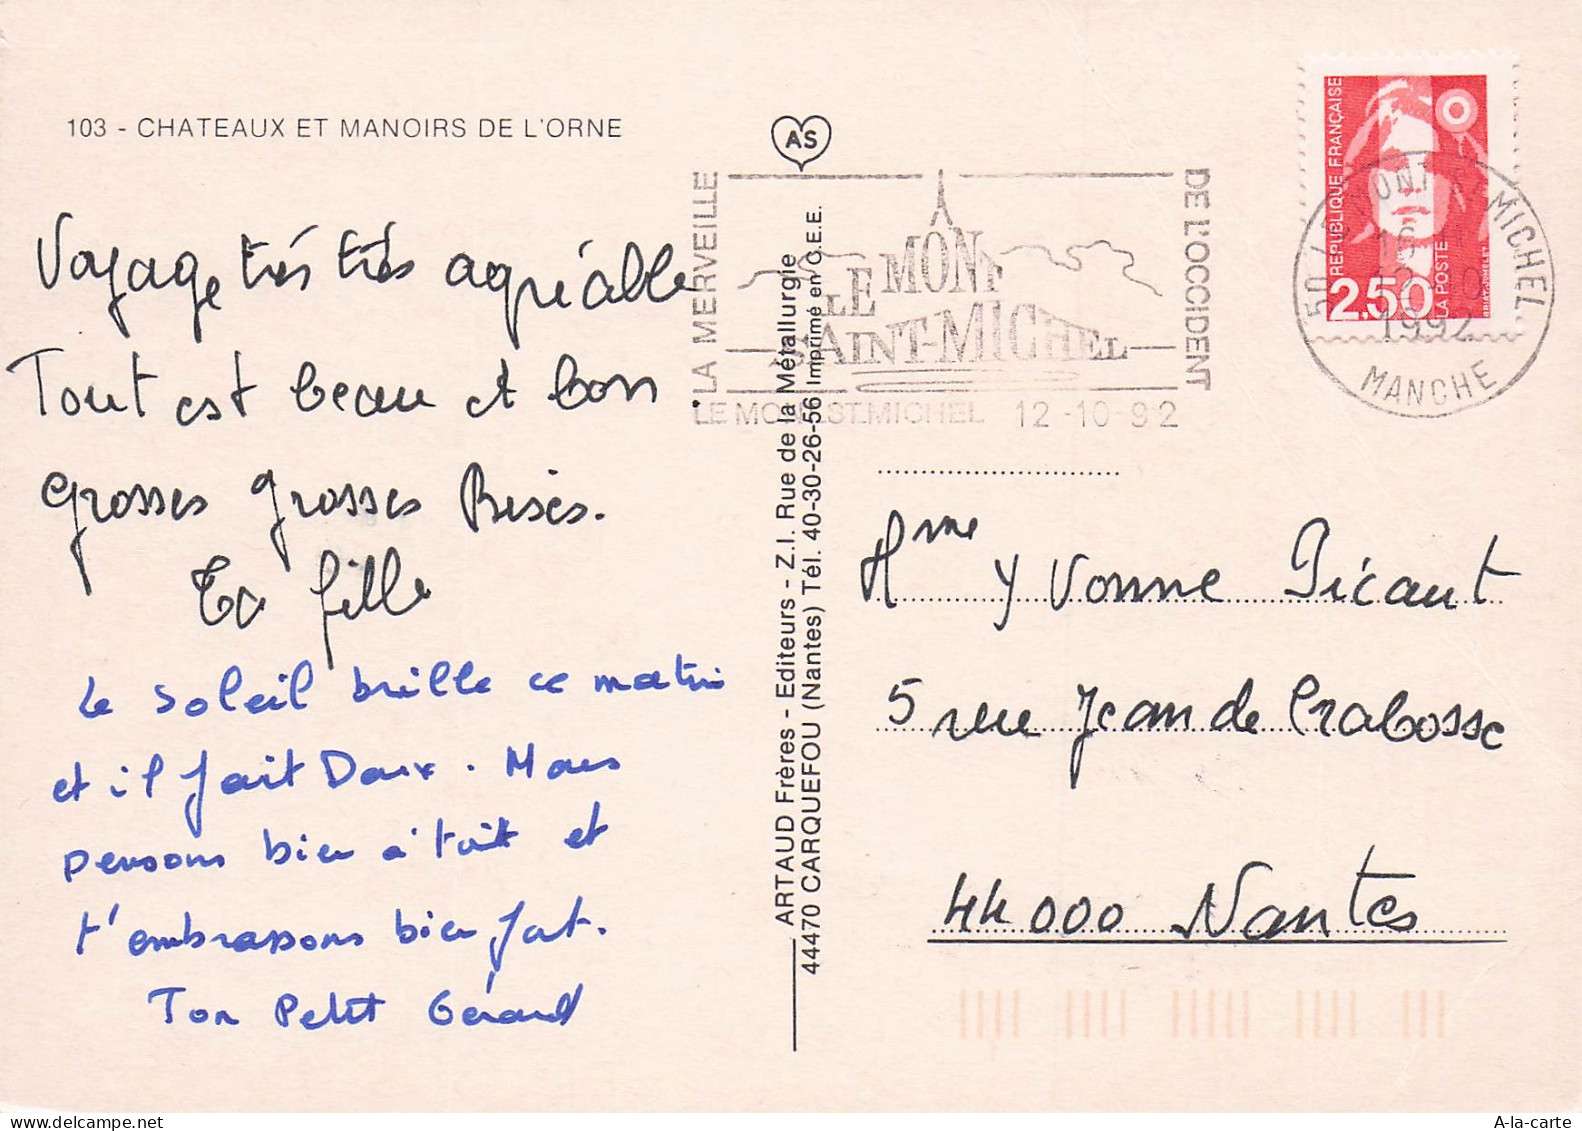 103 - CHATEAUX ET MANOIRS DE L'ORNE
AS
Voyage très très agréable
Tout est beau et bon
grosses grosses Bises.
Ta fille
Le soleil brille ce matin
et il fait Doux. Nous
pensons bien à toi et
t'embrassons bien fort.
Ton Petit Gérard
ARTAUD Frères - Editeurs - Z.I. Rue de la Métallurgie
44470 CARQUEFOU (Nantes) Tél. 40-30-26-56 Imprimé en C.E.E.
LA MERVEILLE
LE MONT
SAINT-MICHEL
DE L'OCCIDENT
LE MONT ST.MICHEL 12-10-92
REPUBLIQUE FRANÇAISE
2,50
LA POSTE
50 LE MONT ST MICHEL
1992
MANCHE
Mme Yvonne Picaut
5 rue Jean de Crabosse
44000 Nantes
A-la-carte